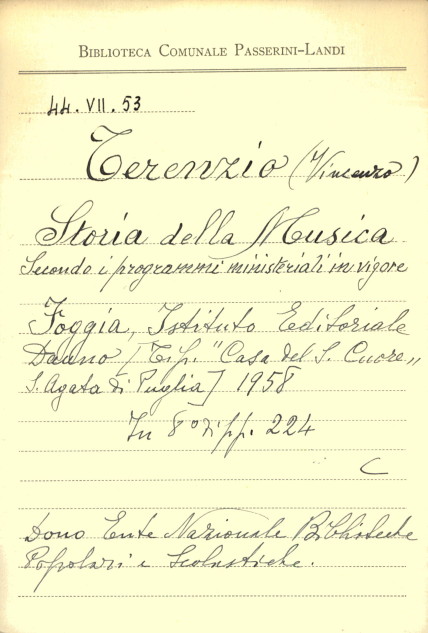 BIBLIOTECA COMUNALE PASSERINI-LANDI
44. VII. 53
Terenzio (Vincenzo)
Storia della Musica
Secondo i programmi ministeriali in vigore
Foggia, Istituto Editoriale
Dauno [Tip. "Casa del S. Cuore„
S. Agata di Puglia] 1958
In 8° di pp. 224
C
Dono Ente Nazionale Biblioteche
Popolari e Scolastiche.